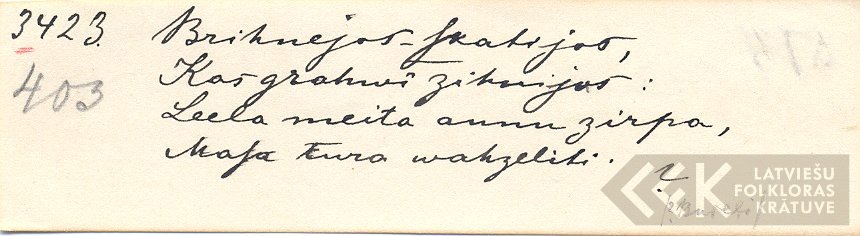 3423. Brihnejos-skatijos,
403 Kas grahwî zihnijos:
Leela meita aunu zirpa,
Masa tura wahzeliti.
LATVIEŠU
FOLKLORAS
KRĀTUVE